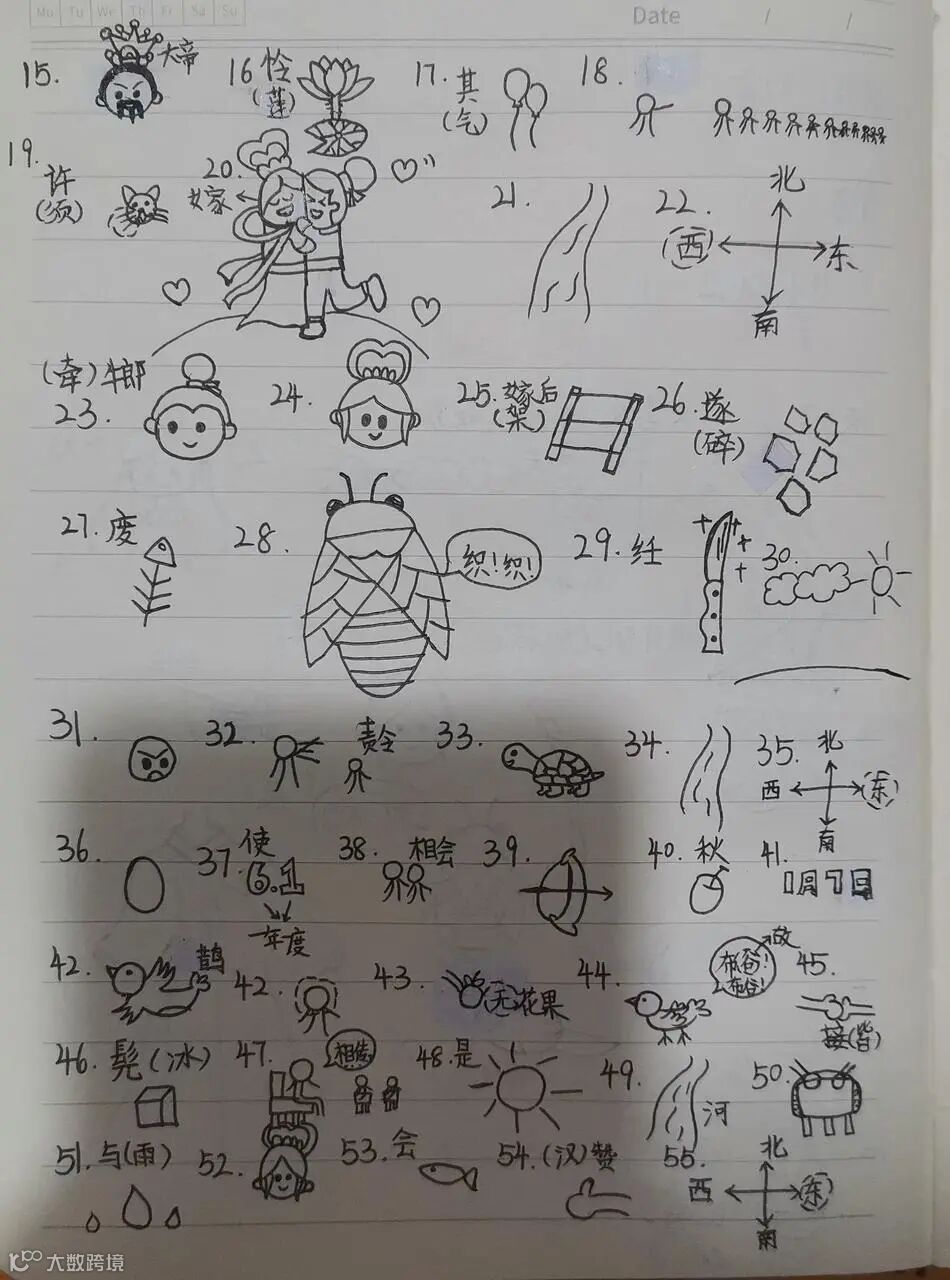 Mo Tu We Th Fr Sa Su
Date / /
15. 大帝 16. 怜 (莲) 17. 其 (气) 18.
19. 许 (须) 20. 嫁 21. 22. 北 (西) 东 南
(牵)牛郎
23. 24. 25. 嫁后 (架) 26. 遂 (碎)
27. 废 28. 织!织! 29. 纴 30.
31. 32. 责令 33. 34. 35. 北 西 (东) 南
36. 37. 使 6.1 一年度 38. 相会 39. 40. 秋 41. 1月7日
42. 鹊 42. 43. (无)花果 44. 布谷! 布谷! 故 45. 接(皆)
46. 髡(冰) 47. 相传 48. 是 49. 河 50.
51. 与(雨) 52. 53. 会 54. (汉)赞 55. 北 西 (东) 南
大数跨境